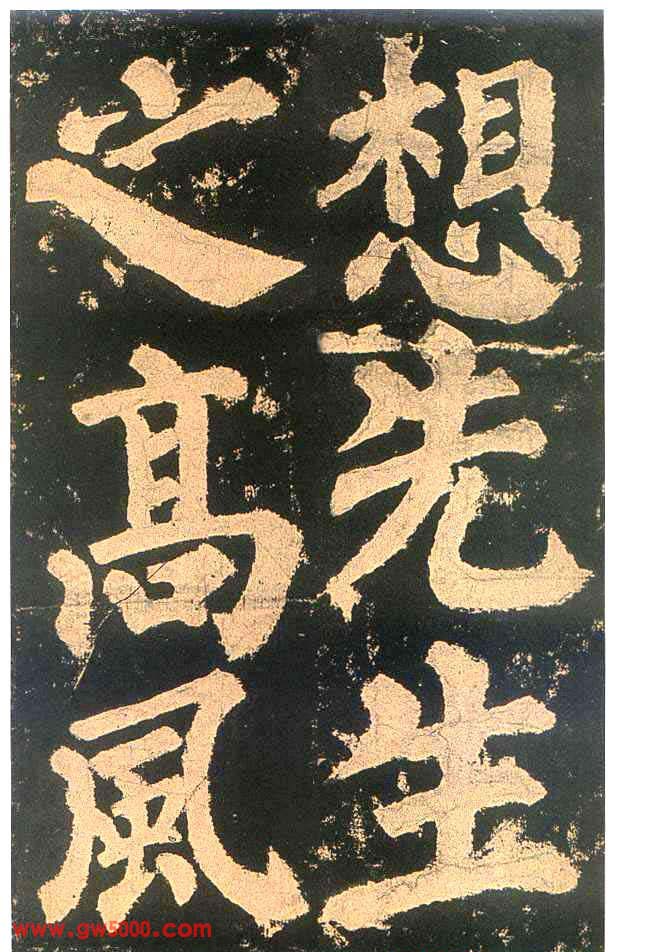 想先生
之髙風
www.gw5000.com